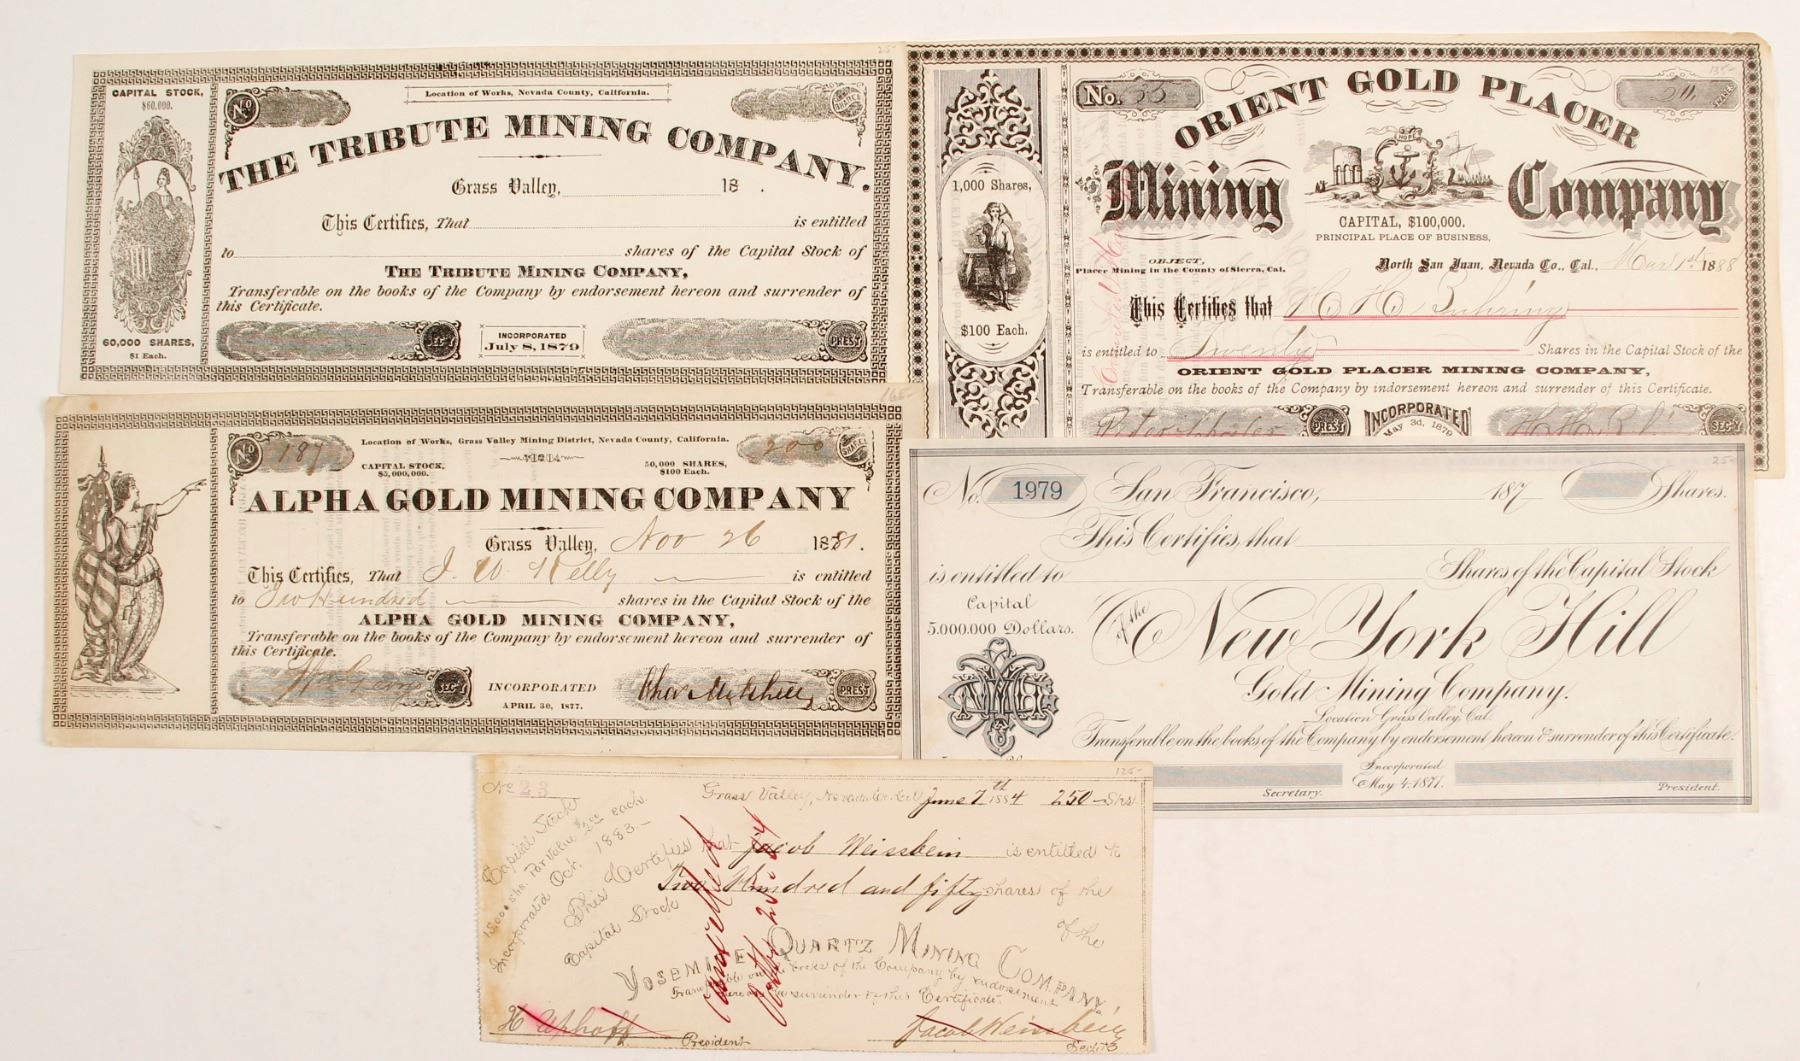 25-
CAPITAL STOCK,
$60,000.
No
Location of Works, Nevada County, California.
SHARES
THE TRIBUTE MINING COMPANY.
Grass Valley, 18 .
This Certifies, That is entitled
to shares of the Capital Stock of
THE TRIBUTE MINING COMPANY,
Transferable on the books of the Company by endorsement hereon and surrender of
this Certificate.
60,000 SHARES,
$1 Each.
SEC'Y
INCORPORATED
July 8, 1879
PREST
135-
No. 53
20
SHARES
ORIENT GOLD PLACER
Mining Company
HOPE
CAPITAL, $100,000.
PRINCIPAL PLACE OF BUSINESS,
1,000 Shares,
$100 Each.
OBJECT,
Placer Mining in the County of Sierra, Cal.
North San Juan, Nevada Co., Cal., Mar 1st 1888
This Certifies that H H Buhring
is entitled to Twenty Shares in the Capital Stock of the
ORIENT GOLD PLACER MINING COMPANY,
Transferable on the books of the Company by indorsement hereon and surrender of this Certificate.
PREST
INCORPORATED
May 3d, 1879
SEC'Y
165-
No 187
Location of Works, Grass Valley Mining District, Nevada County, California.
200
SHARES
CAPITAL STOCK,
$5,000,000.
50,000 SHARES,
$100 Each.
ALPHA GOLD MINING COMPANY
Grass Valley, Nov 26 1881.
This Certifies, That J. W. Kelly is entitled
to Two Hundred shares in the Capital Stock of the
ALPHA GOLD MINING COMPANY,
Transferable on the books of the Company by endorsement hereon and surrender of
this Certificate.
SEC'Y
INCORPORATED
APRIL 30, 1877.
Thos Mitchell
PREST
25-
No. 1979 San Francisco, 187 Shares.
This Certifies that
is entitled to Shares of the Capital Stock
Capital
5.000.000 Dollars.
of the New York Hill
Gold Mining Company.
Location Grass Valley, Cal.
Transferable on the books of the Company by endorsement hereon & surrender of this Certificate.
Incorporated
May 4, 1877.
Secretary.
President.
125-
No 23
Grass Valley, Nevada Co. Cal June 7th 1884 250 Shs.
Capital Stock
15,000 shs. Par Value $2.00 each
Incorporated Oct. 1883.-
This Certifies that Jacob Weissbein is entitled to
Two Hundred and fifty shares of the
Capital Stock of the
YOSEMITE QUARTZ MINING COMPANY,
Transferable on the books of the Company by endorsement
hereon & surrender of this Certificate.
Cancelled
H Uphoff
President
Jacob Weissbein
Sect'y